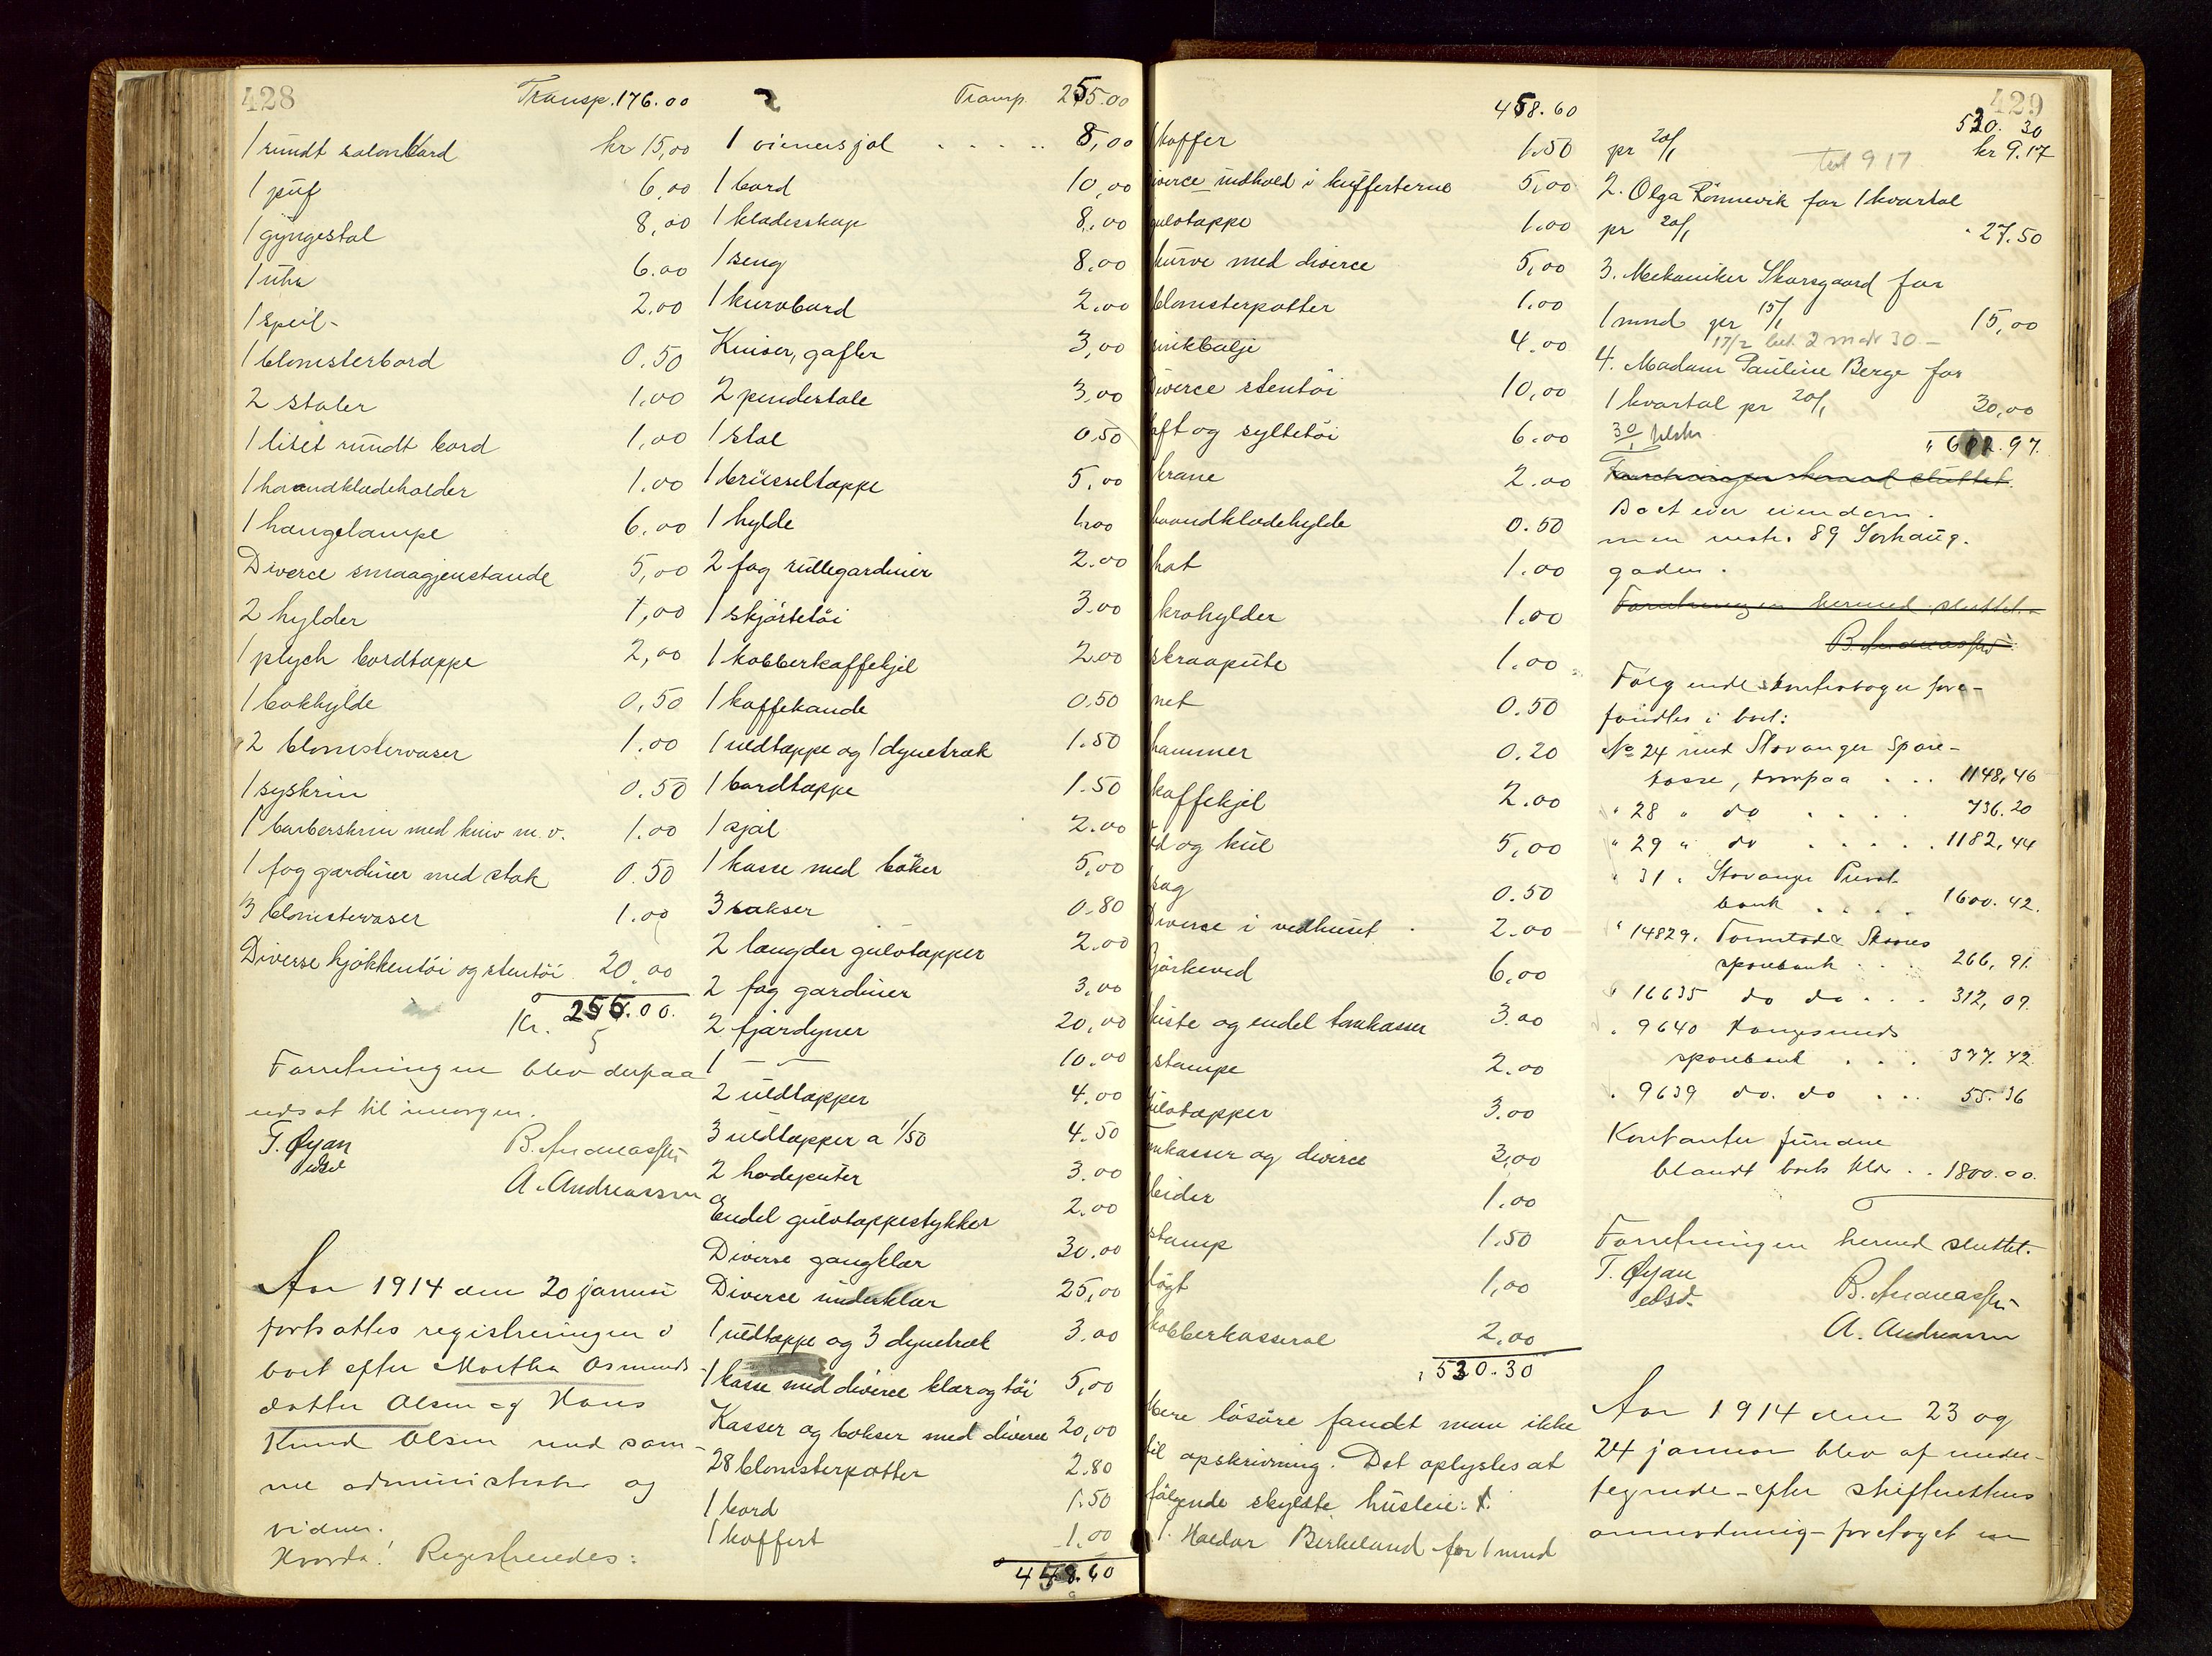 428
Transp. 176.00
1 rundt salonbord kr 15,00
1 puf 6,00
1 gyngestol 8,00
1 uhr 6.00
1 speil - 2.00
1 blomsterbord 0.50
2 stoler 1,00
1 litet rundt bord 1,00
1 haandklædeholder 1.00
1 hængelampe 6,00
Diverce smaagjenstande 5,00
2 hylder 1,00
1 plych bordtæppe 2,00
1 bokhylde 0,50
2 blomstervaser 1.00
1 syskrin 0.50
1 barberskrin med kniv m.v. 1.00
1 fag gardiner med stok 0.50
3 blomstervaser 1.00
Diverse kjøkkentøi og stentøi 20.00
Kr. 255.00.
Forretningen blev derpaa
udsat til imorgen.
T. Øyan
edsv
B. Andreassen
A. Andreassen
Aar 1914 den 20 januar
fortsattes registreringen i
boet efter Martha Asmunds-
datter Olsen og Hans
Knud Olsen med sam-
me administrator og
vidner.
Hvorda! Registreredes:
Transp. 255.00
1 vienersjal . . . . . 8,00
1 bord 10,00
1 klædesskap 8,00
1 seng 8.00
1 kurvbord 2.00
Kniver, gafler 3,00
2 pindestole 3,00
1 stol 0.50
1 brüsseltæppe 5,00
1 hylde 1.00
2 fag rullegardiner 2.00
1 skjørtetøi 3.00
1 kobberkaffekjel 2.00
1 kaffekande 0.50
1 uldtæppe og 1 dynetræk 1.50
1 bordtæppe 1.50
1 sjal 2.00
1 kasse med bøker 5,00
3 sakser 0.80
2 længder gulvtæpper 2.00
2 fag gardiner 3,00
2 fjærdyner 20,00
1 — 10.00
2 uldtæpper 4.00
3 uldtæpper a 1/50 4.50
2 hodeputer 3.00
Endel gulvtæppestykker 2.00
Diverse gangklær 30.00
Diverce underklær 25,00
1 uldtæppe og 3 dynetræk 3.00
1 kasse med diverce klær og tøi 5,00
Kasser og bokser med diverce 20,00
28 blomsterpotter 2.80
1 bord 1.50
1 koffert 1.00
458.60
458.60
koffer 1.50
iverce indhold i kufferterne 5,00
gulvtæppe 1.00
kurve med diverce 5,00
blomsterpotter 1.00
sinkbalje 4.00
Diverce stentøi 10,00
aft og syltetøi 6.00
krane 2.00
haandklædehylde 0.50
hat 1.00
krohylder 1.00
skraapute 1.00
net 0.50
hammer 0.20
kaffekjel 2.00
ed og kul 5,00
sag 0.50
Diverce i vedhuset 2.00
Bjørkeved 6,00
kiste og endel tomkasser 3.00
stampe 2.00
gulvtæpper 3.00
omkasser og diverce 3,00
leider 1.00
stamp 1.50
løgt 1,00
kobberkasserol 2.00
530.30
Mere løsøre fandt man ikke
til opskrivning. Det oplystes at
følgende skyldte husleie:
1. Haldor Birkeland for 1 mnd
429
530.30
pr 20/1 kr 9.17
bet 917
2. Olga Rönnevik for 1 kvartal
pr 20/1 " 27.50
3. Mekaniker Skorsgaard for
1 mnd pr 15/1 15,00
17/2 bet. 2 mdr 30 —
4. Madam Pauline Berge for
1 kvartal pr 20/1 30,00
" 612.97.
Forretningen hermed sluttet.
Boet eier eiendom.
men matr. 89 Sørhaug.
gaden.
Forretningen hermed sluttet.
B. Andreassen
Følgende kontrabøger fore-
fandtes i boet:
No 24 med Stavanger Spare-
kasse, lydende paa . . . 1148,46
" 28 " do . . . . 736.20
" 29 " do . . . . . 1182,44
" 31 " Stavanger Privat-
bank . . . . 1600.42.
" 14829. Torvestads Skaares
sparebank . . . 266,91.
" 16635 do do . . . 312,09.
" 9640 Haugesunds
sparebank . . . 377.42
" 9639 do. do . . . 55.36
Kontanter fundne
blandt boets klær . . 1800.00.
Forretningen hermed sluttet.
T. Øyan
edsv.
B. Andreassen
A. Andreassen
Aar 1914 den 23 og
24 januar blev af under-
tegnede - efter skifterettens
anmodning - foretaget en